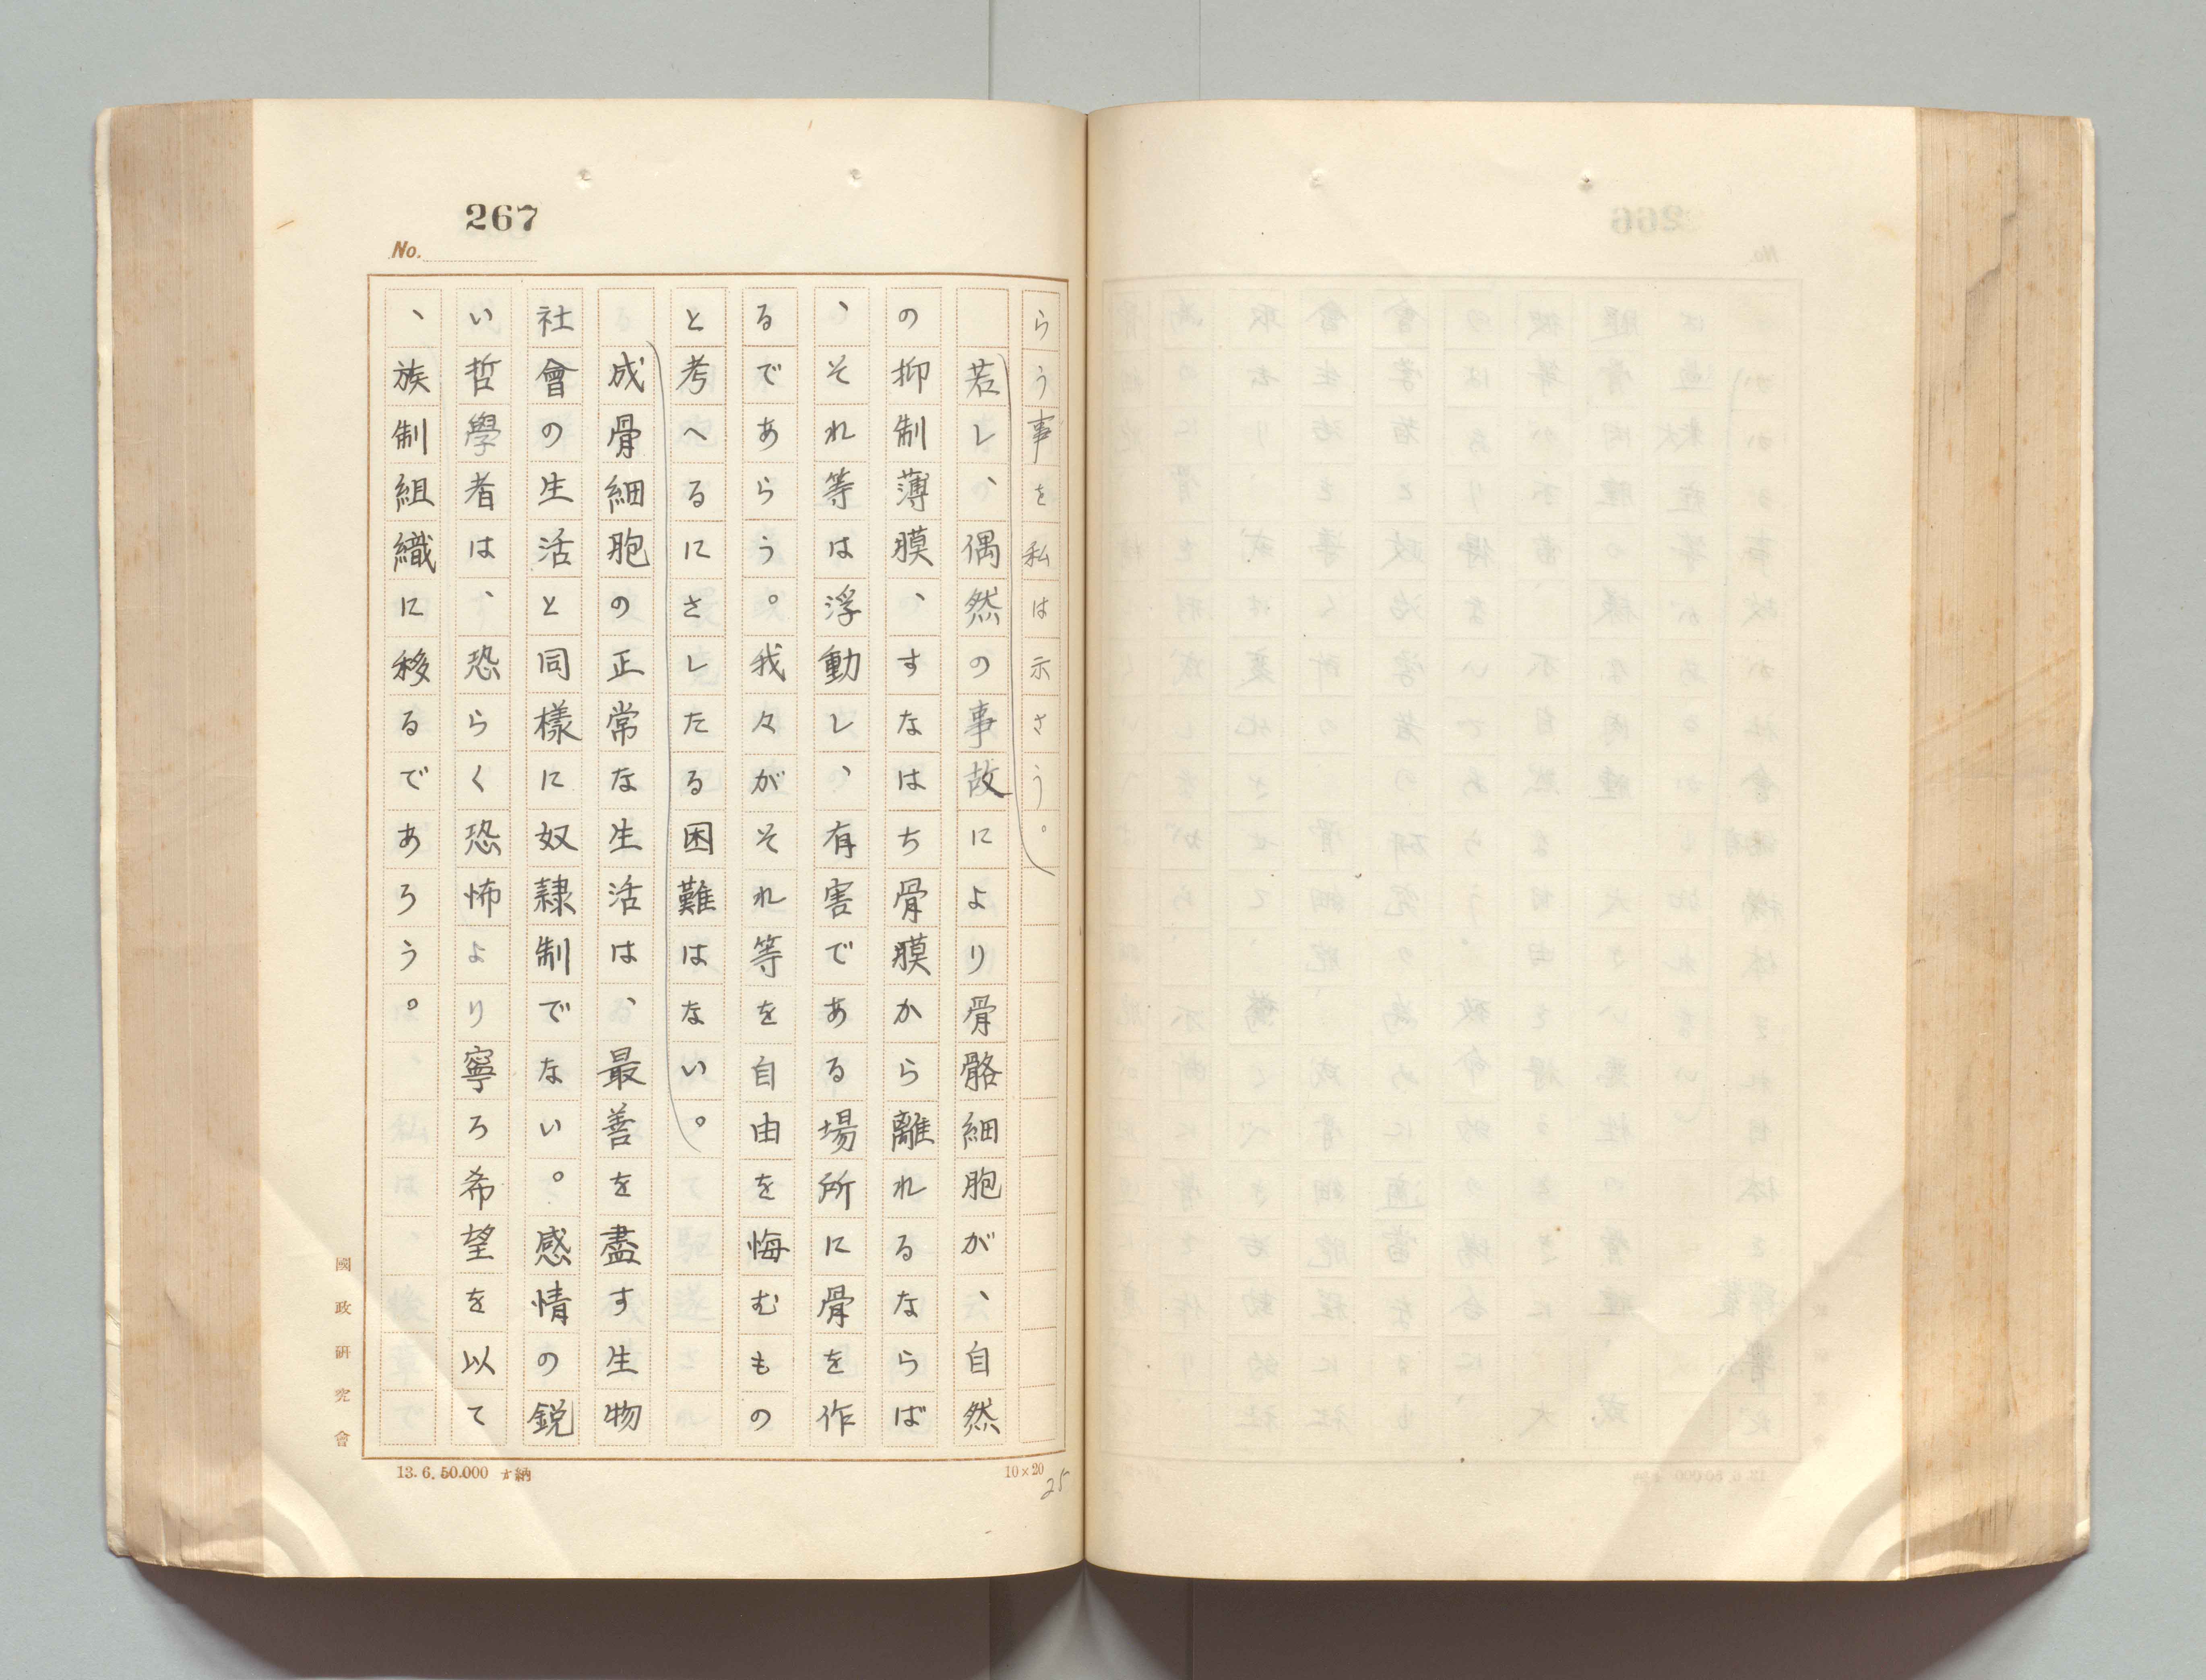 267
No.
らう事を私は示さう。
若し、偶然の事故により骨骼細胞が、自然
の抑制薄膜、すなはち骨膜から離れるならば
、それ等は浮動し、有害である場所に骨を作
るであらう。我々がそれ等を自由を悔むもの
と考へるにさしたる困難はない。
成骨細胞の正常な生活は、最善を盡す生物
社會の生活と同様に奴隷制でない。感情の鋭
い哲學者は、恐らく恐怖より寧ろ希望を以て
、族制組織に移るであろう。
國政研究會
13.6.50.000 納
10×20
25